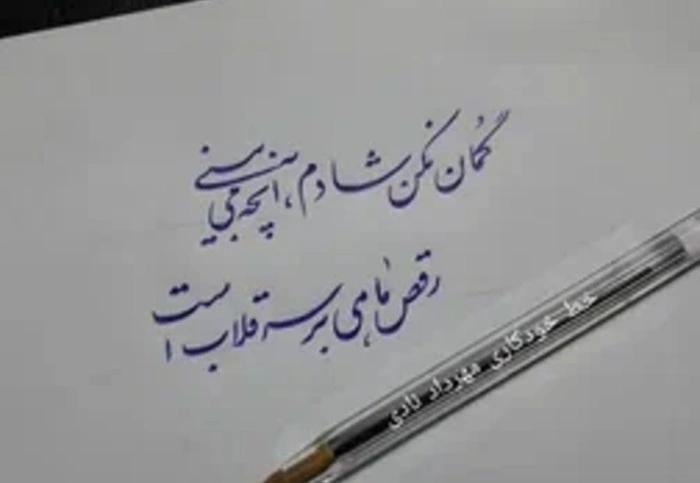 گمان نکن شادم، آنچه می بینی
رقص ماهی بر سر قلاب است
خط خودکاری مهرداد نادی